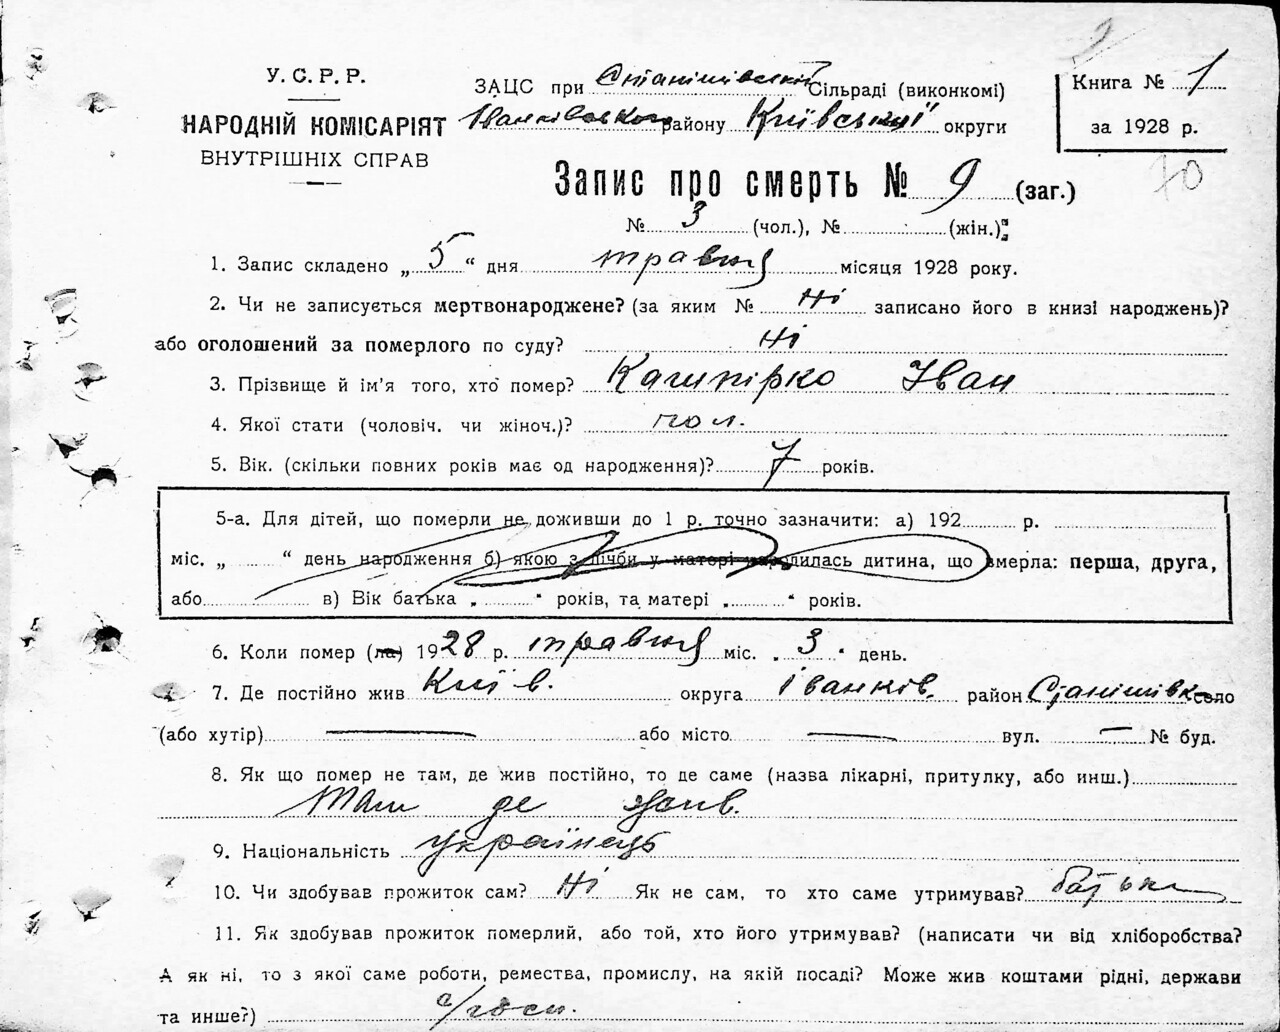 У. С. Р. Р.
НАРОДНІЙ КОМІСАРІЯТ
ВНУТРІШНІХ СПРАВ
ЗАЦС при Станішівській Сільраді (виконкомі)
Іванківського району Київської округи
Книга № 1
за 1928 р.
70
Запис про смерть № 9 (заг.)
№ 3 (чол.), № (жін.);
1. Запис складено „ 5 “ дня травня місяця 1928 року.
2. Чи не записується мертвонароджене? (за яким № Ні записано його в книзі народжень)?
або оголошений за померлого по суду? Ні
3. Прізвище й ім'я того, хто помер? Іван
4. Якої стати (чоловіч. чи жіноч.)? чол.
5. Вік. (скільки повних років має од народження)? 7 років.
5-а. Для дітей, що померли не доживши до 1 р. точно зазначити: а) 192 р.
міс. „ “ день народження б) якою з лічби у матері народилась дитина, що вмерла: перша, друга,
або в) Вік батька „ “ років, та матері „ “ років.
6. Коли помер (ла) 1928 р. травня міс. „ 3 “ день.
7. Де постійно жив Київ. округа Іванків. район Станішівка село
(або хутір) — або місто — вул. — № буд.
8. Як що помер не там, де жив постійно, то де саме (назва лікарні, притулку, або инш.)
Там де жив.
9. Національність українець
10. Чи здобував прожиток сам? Ні Як не сам, то хто саме утримував? батьки
11. Як здобував прожиток померлий, або той, хто його утримував? (написати чи від хліборобства?
А як ні, то з якої саме роботи, ремества, промислу, на якій посаді? Може жив коштами рідні, держави
та инше?) с/госп.